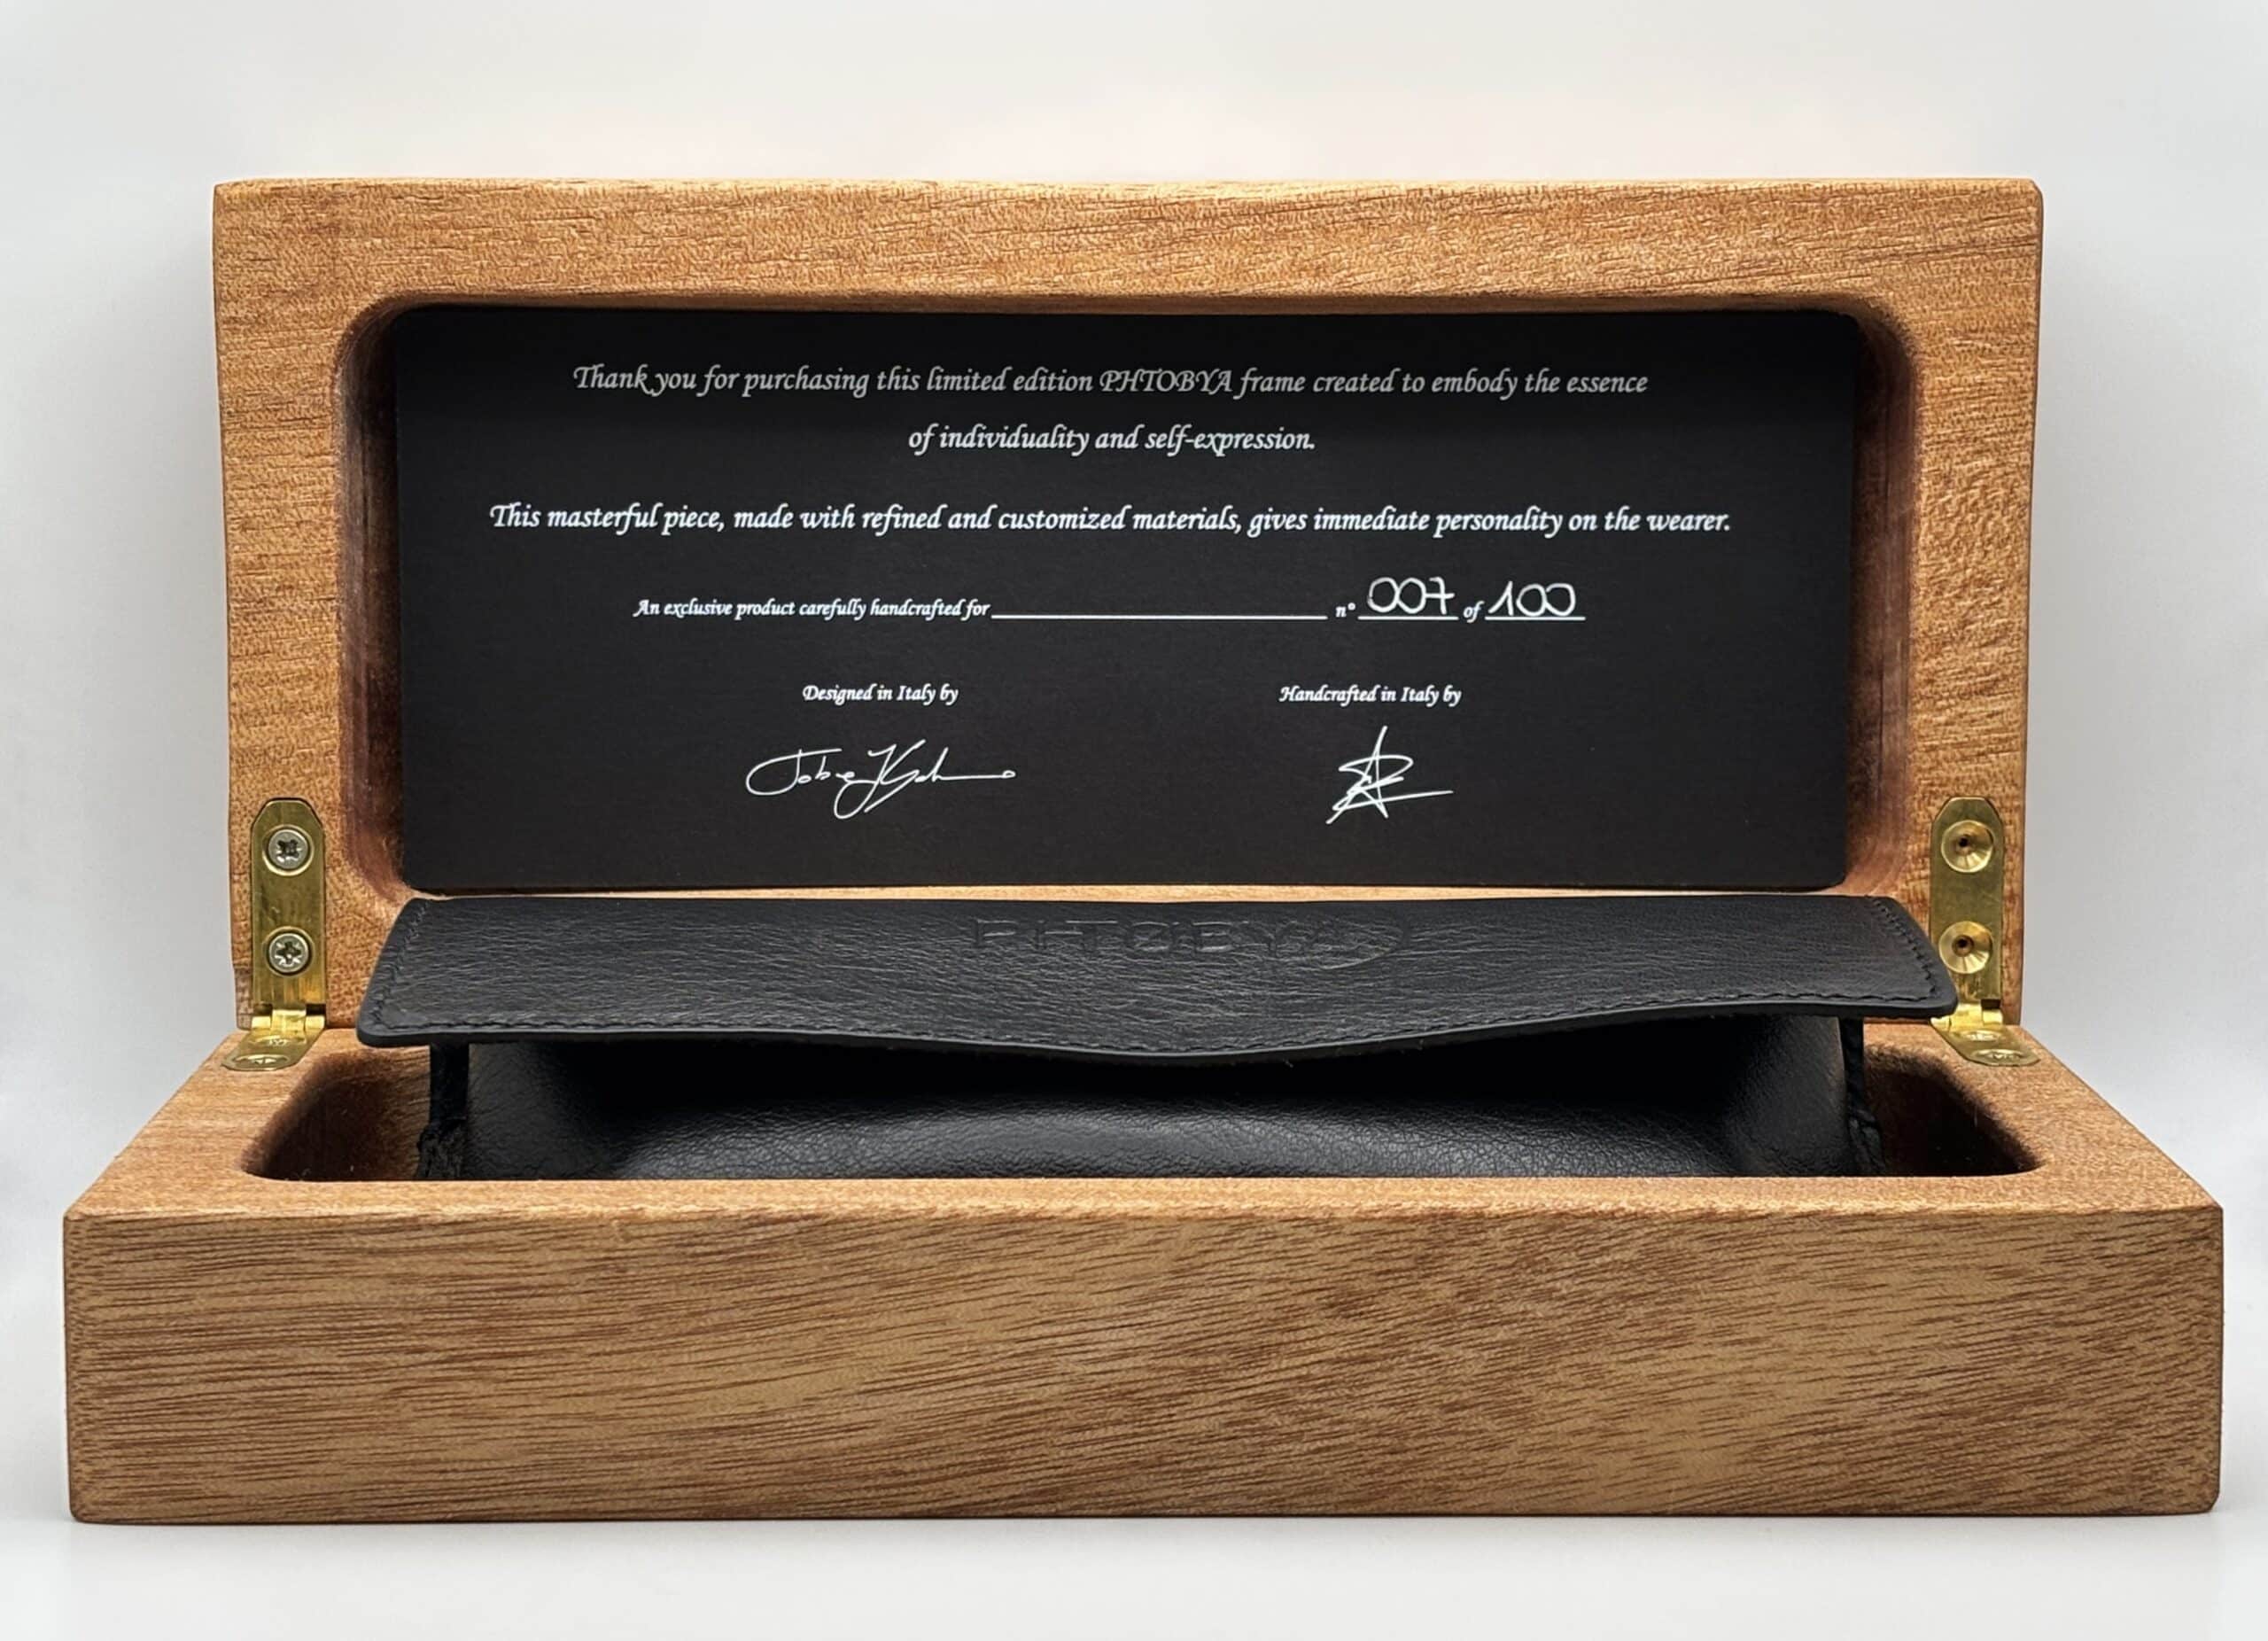 Thank you for purchasing this limited edition PHTOBYA frame created to embody the essence
of individuality and self-expression.
This masterful piece, made with refined and customized materials, gives immediate personality on the wearer.
An exclusive product carefully handcrafted for ____________________ n° 007 of 100
Designed in Italy by
Handcrafted in Italy by
PHTOBYA